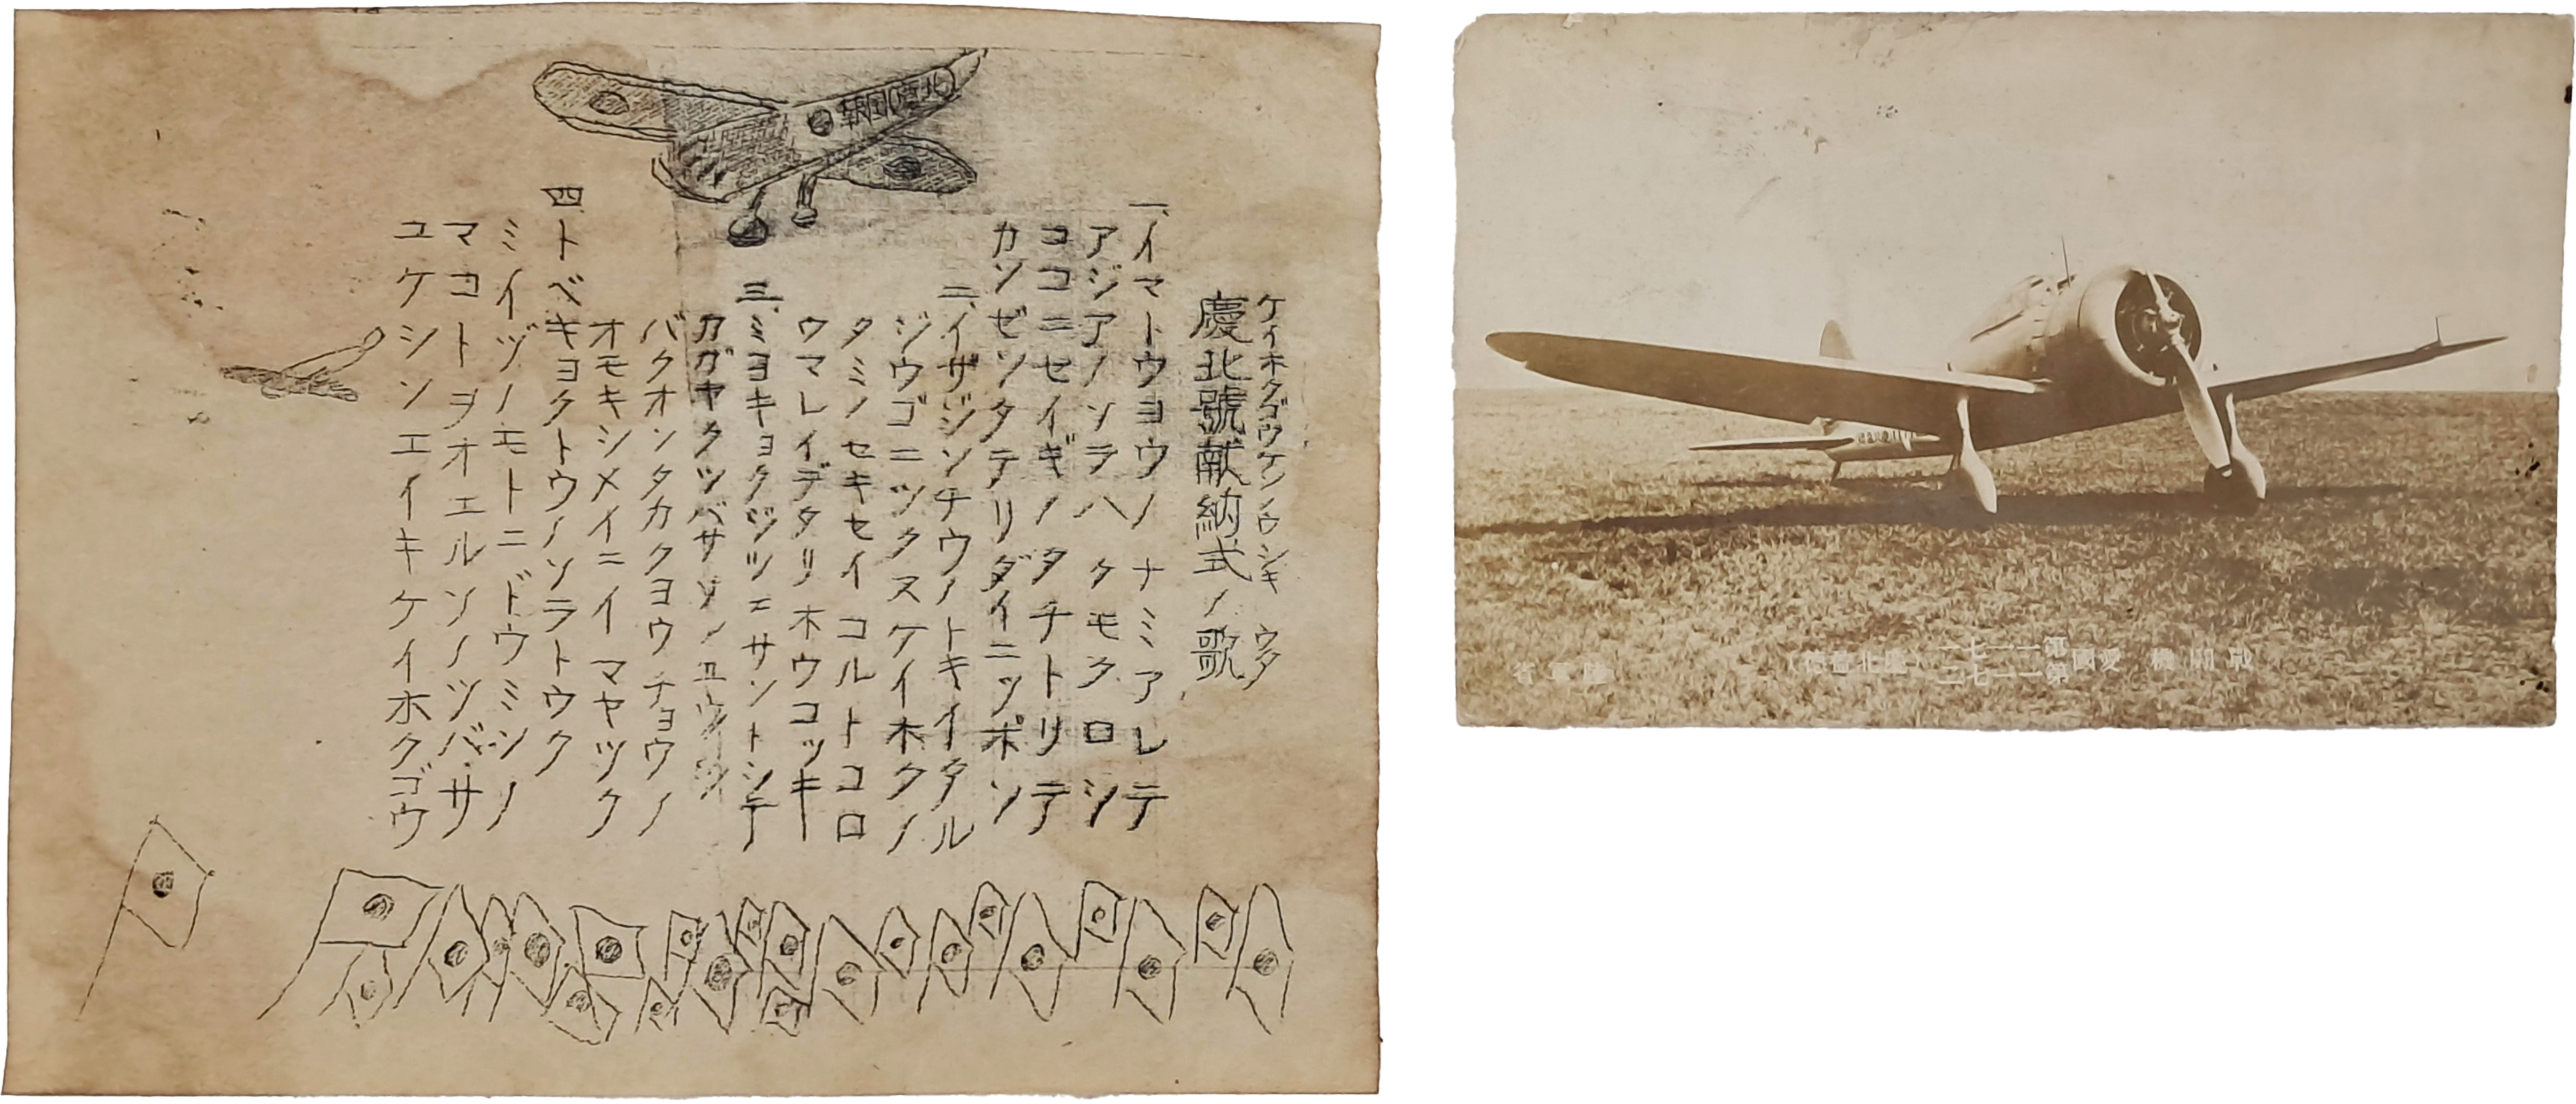 ケイホクゴウケンノウシキ ウタ
慶北號献納式ノ歌
一、イマトウヨウノナミアレテ
アジアノソラハクモクロシ
ココニセイギノタチトリテ
カンゼンタテリダイニッポン
二、イザジンチウノトキイタル
ジウゴニツクスケイホクノ
タミノセキセイコルトコロ
ウマレイデタリホウコッキ
三、ミヨキョクジツエサントシテ
カガヤクツバサソノユウシ
バクオンタカクヨウチョウノ
オモキシメイニイマヤツク
四、トベキヨクトウノソラトウク
ミイヅノモトニドウミンノ
マコトヲオエルソノツバサ
ユケシンエイキケイホクゴウ
戰鬪機 愛國
第一一七一
第一一七二
陸軍省